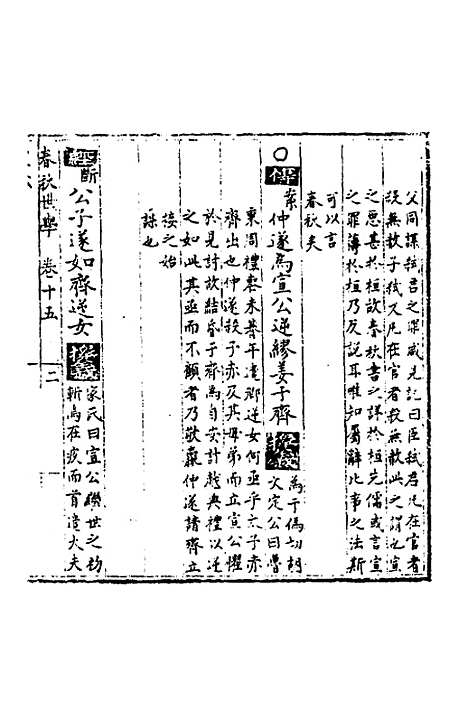 父同謀弑君之罪咸見記曰臣弑君凡在官者
殺無赦子弑父凡在官者殺無赦此之謂也宣
之惡甚於桓故春秋書之詳於桓先儒或言宣
之罪薄於桓乃反說耳唯知屬辭比事之法斯
可以言
春秋矣
○傳 案仲遂為宣公逆繆姜于齊
為于僞切胡
文定公曰魯
秉周禮喪未朞年遣卿逆女何亟乎太子赤
齊出也仲遂殺子赤及其母弟而立宣公懼
於見討故結昏于齊為自安計越典禮以逆
之如此其亟而不顧者乃敬嬴仲遂請齊立
接之始
謀也
經 斷 公子遂如齊逆女
家氏曰宣公
斬焉在疚而首遣大夫
春秋世學 卷十五
二